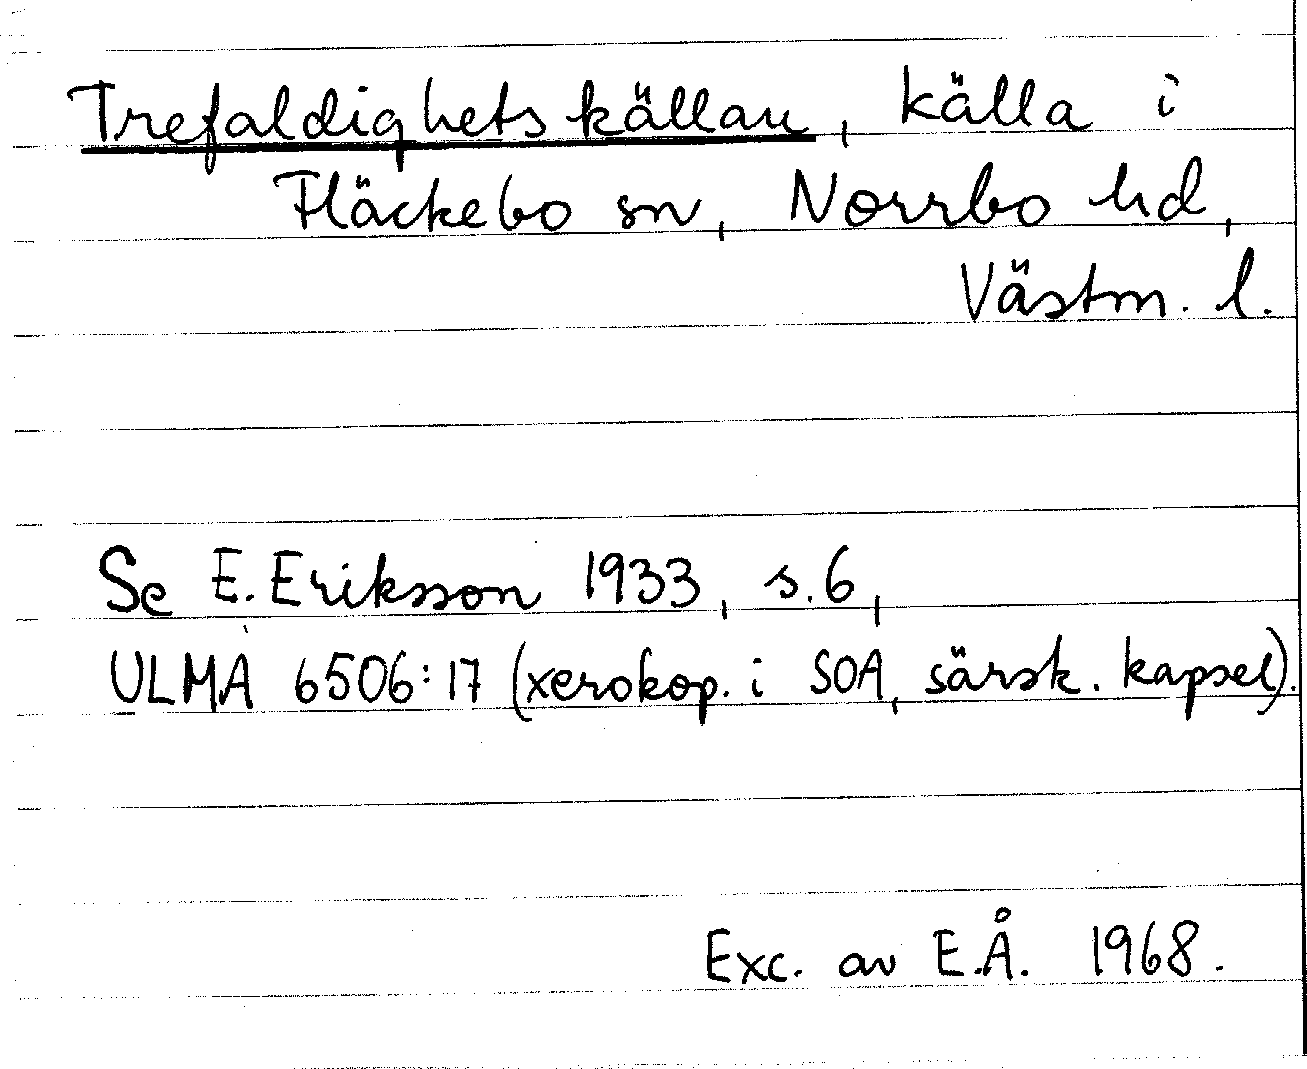 Trefaldighetskällan, källa i
Fläckebo sn, Norrbo hd,
Västm. l.
Se E. Eriksson 1933, s. 6,
ULMA 6506:17 (xerokop. i SOA, särsk. kapsel).
Exc. av E.Å. 1968.